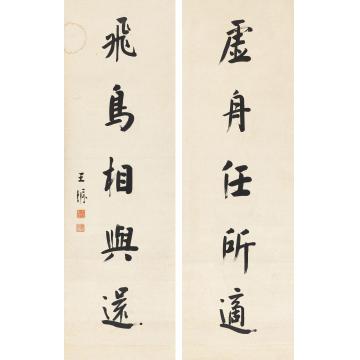 虛舟任所適
飛鳥相與還
王